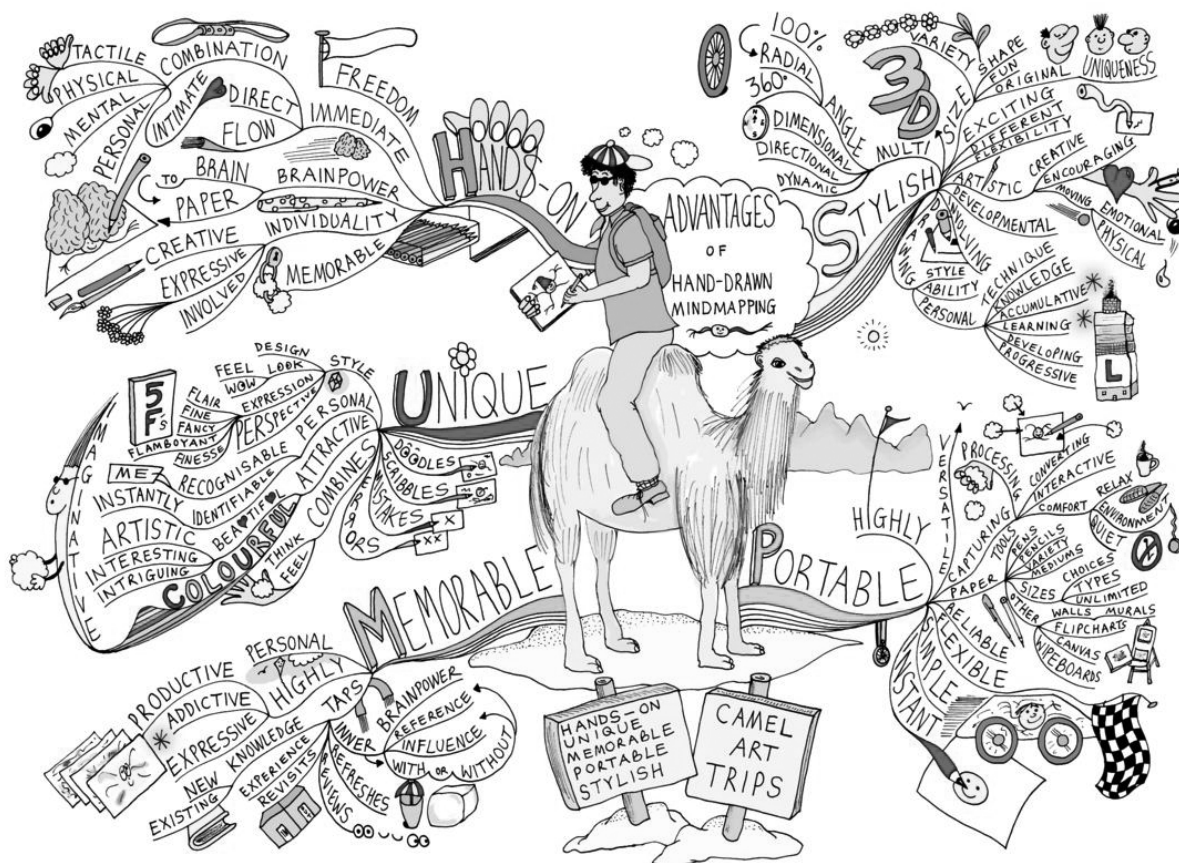 ADVANTAGES
OF
HAND-DRAWN
MINDMAPPING
HANDS-ON
FREEDOM
IMMEDIATE
COMBINATION
TACTILE
PHYSICAL
MENTAL
PERSONAL
INTIMATE
DIRECT
FLOW
BRAINPOWER
BRAIN
TO
PAPER
INDIVIDUALITY
CREATIVE
EXPRESSIVE
INVOLVED
MEMORABLE
STYLISH
3D
MULTI
ANGLE
100%
RADIAL
360°
DIMENSIONAL
DIRECTIONAL
DYNAMIC
SIZE
VARIETY
SHAPE
FUN
ORIGINAL
UNIQUENESS
EXCITING
DIFFERENT
FLEXIBILITY
ARTISTIC
CREATIVE
ENCOURAGING
MOVING
EMOTIONAL
PHYSICAL
DEVELOPMENTAL
EVOLVING
STYLE
ABILITY
PERSONAL
TECHNIQUE
KNOWLEDGE
ACCUMULATIVE
LEARNING
DEVELOPING
PROGRESSIVE
L
UNIQUE
STYLE
DESIGN
LOOK
FEEL
WOW
EXPRESSION
PERSPECTIVE
5
Fs
FLAIR
FINE
FANCY
FLAMBOYANT
FINESSE
PERSONAL
RECOGNISABLE
ME
INSTANTLY
IDENTIFIABLE
ATTRACTIVE
BEAUTIFUL
ARTISTIC
INTERESTING
INTRIGUING
COLOURFUL
IMAGINATIVE
COMBINES
THINK
FEEL
DOODLES
SCRIBBLES
MISTAKES
X
ERRORS
XX
MEMORABLE
HIGHLY
PERSONAL
PRODUCTIVE
ADDICTIVE
EXPRESSIVE
TAPS
KNOWLEDGE
NEW
EXISTING
EXPERIENCE
REVISITS
INNER
BRAINPOWER
REFERENCE
INFLUENCE
WITH OR WITHOUT
REFRESHES
REVIEWS
PORTABLE
HIGHLY
VERSATILE
CAPTURING
PROCESSING
CONVERTING
INTERACTIVE
COMFORT
RELAX
ENVIRONMENT
QUIET
TOOLS
PENS
PENCILS
VARIETY
MEDIUMS
PAPER
SIZES
CHOICES
TYPES
UNLIMITED
OTHER
WALLS MURALS
FLIPCHARTS
CANVAS
WIPEBOARDS
RELIABLE
FLEXIBLE
SIMPLE
INSTANT
HANDS-ON
UNIQUE
MEMORABLE
PORTABLE
STYLISH
CAMEL
ART
TRIPS